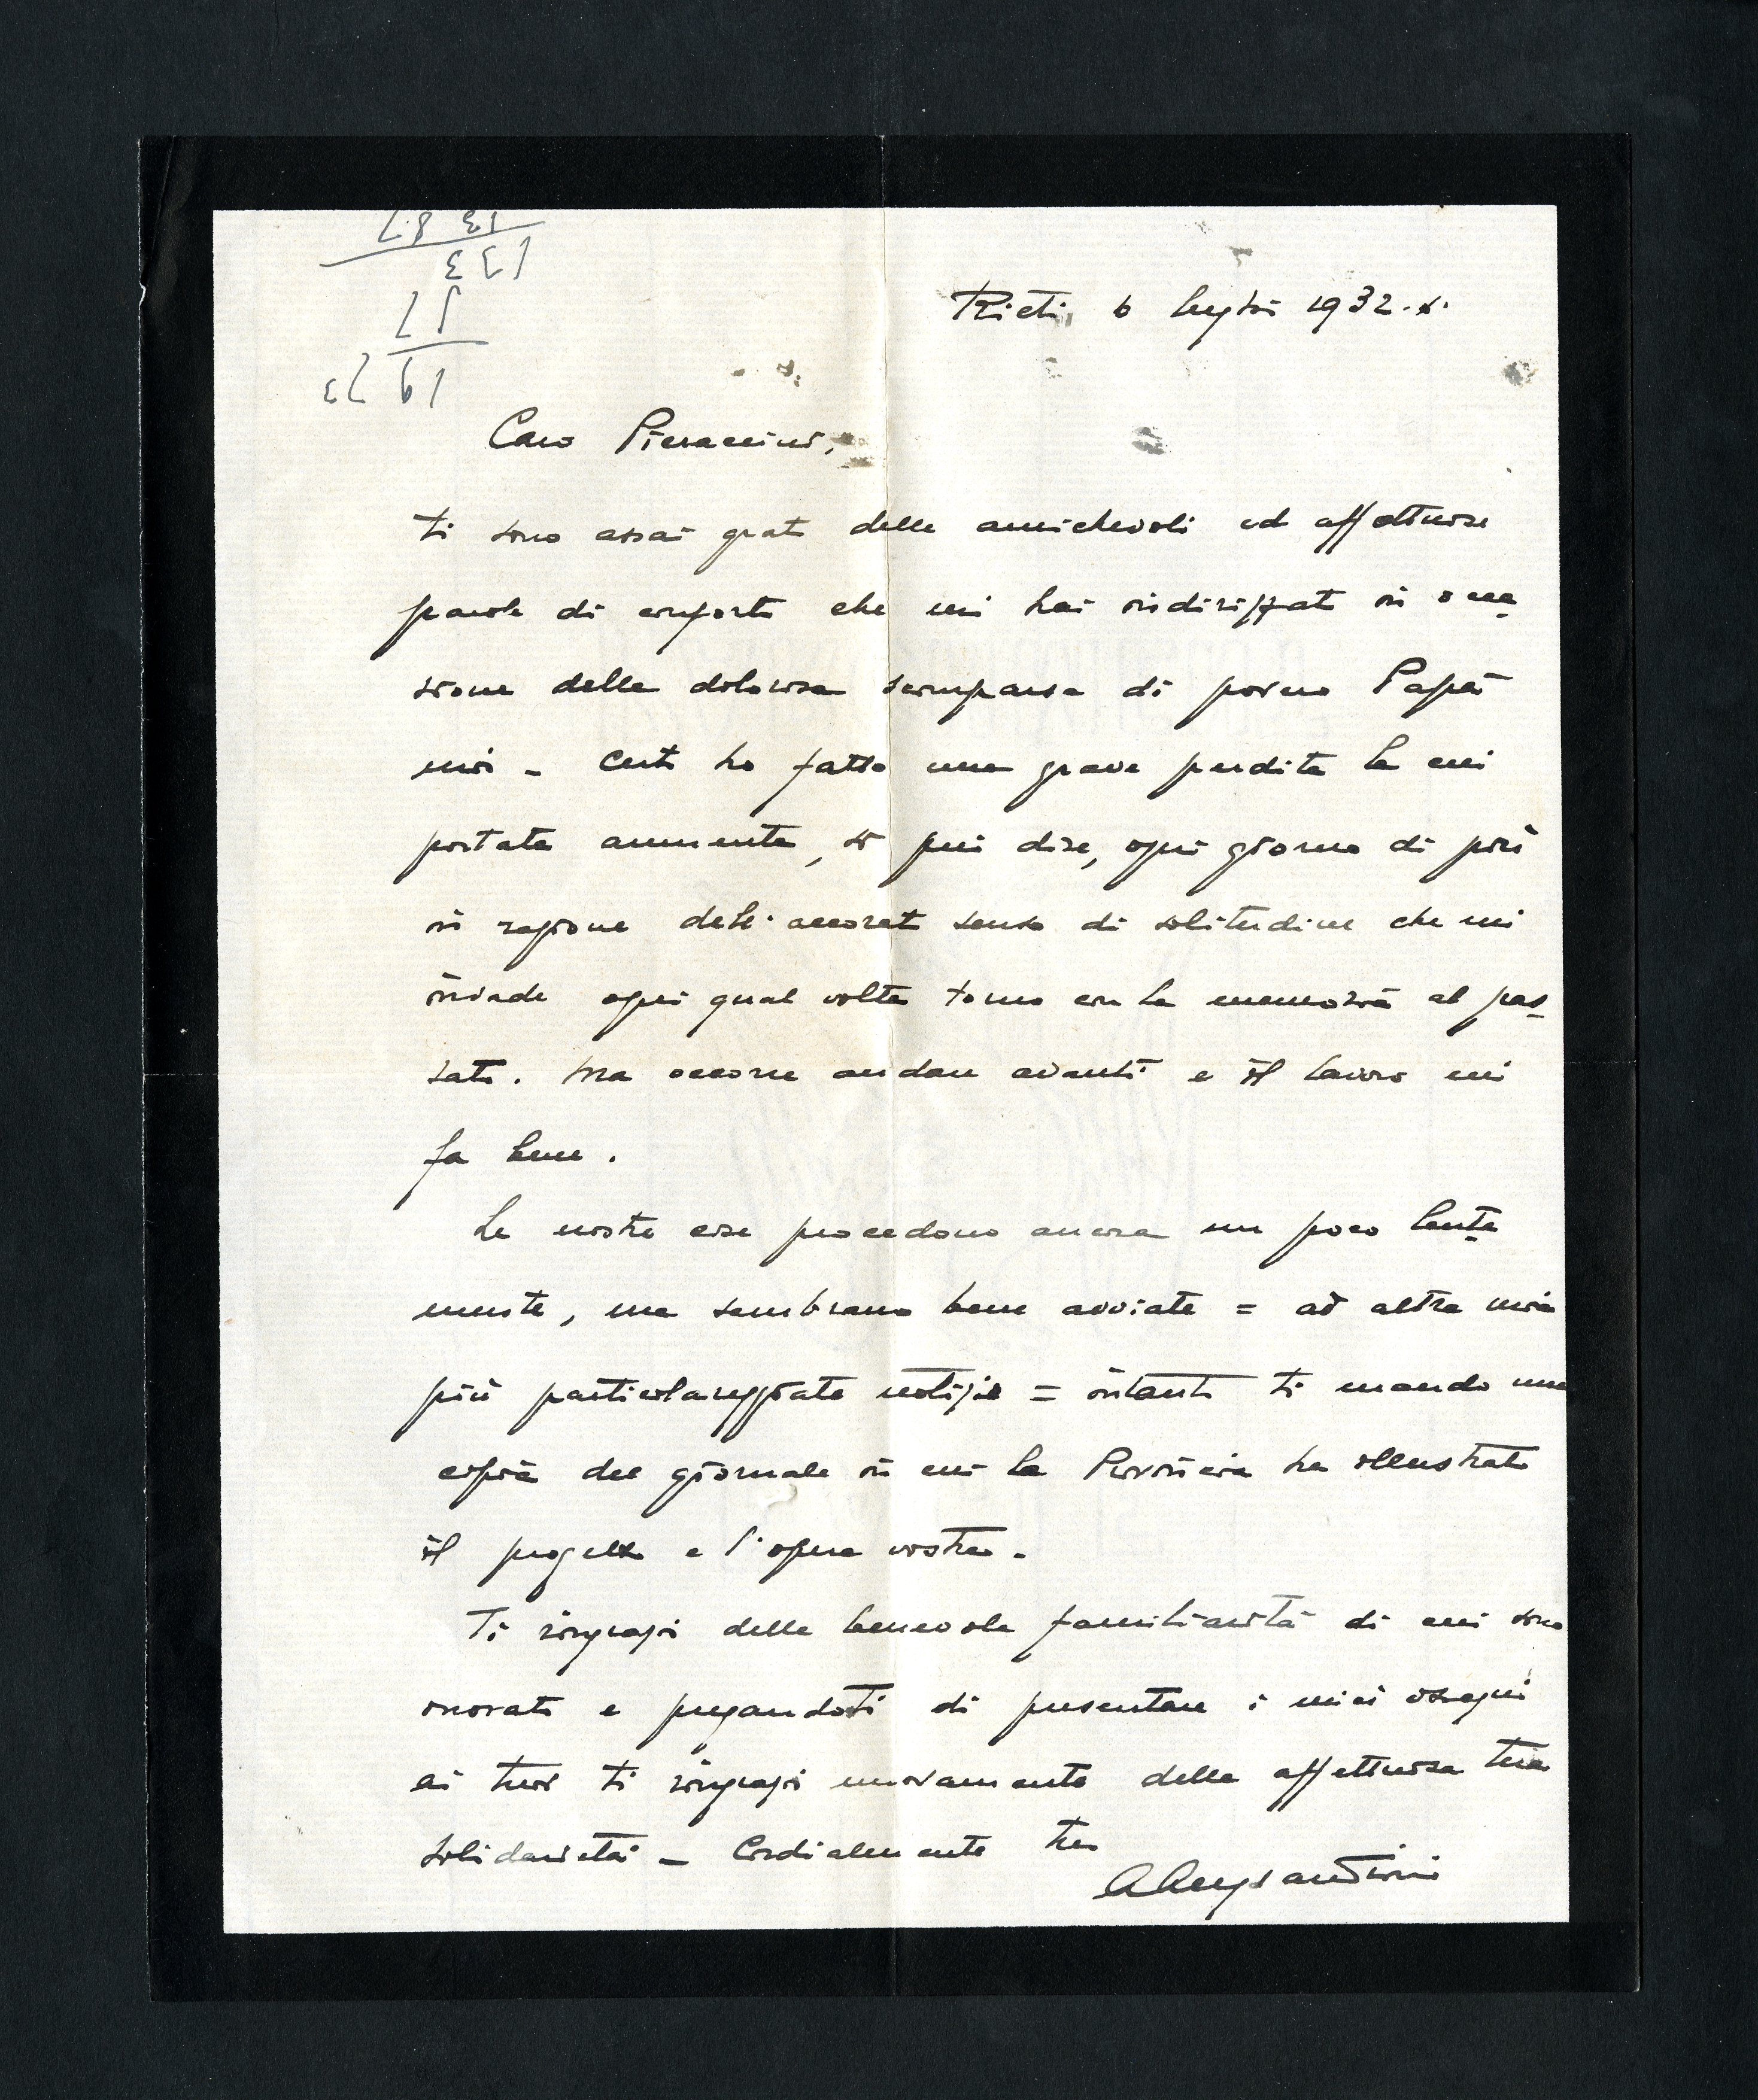 Rieti, 6 luglio 1932.X.
Caro Pieraccini,
ti sono assai grato delle amichevoli ed affettuose
parole di conforto che mi hai indirizzato in occa
sione della dolorosa scomparsa di povero Papà
mio - Certo ho fatto una grave perdita la cui
portata aumenta, si può dire, ogni giorno di più
in ragione dell'accorato senso di solitudine che mi
invade ogni qual volta torno con la memoria al pas
sato. Ma occorre andare avanti e il lavoro mi
fa bene.
Le nostre cose procedono ancora un poco lenta
mente, ma sembrano bene avviate = ad altra mia
più particolareggiate notizie = intanto ti mando una
copia del giornale in cui la Provincia ha illustrato
il progetto e l'opera vostra.
Ti ringrazio della benevola familiarità di cui sono
onorato e pregandoti di presentare i miei ossequi
ai tuoi ti ringrazio nuovamente della affettuosa tua
solidarietà - Cordialmente tuo